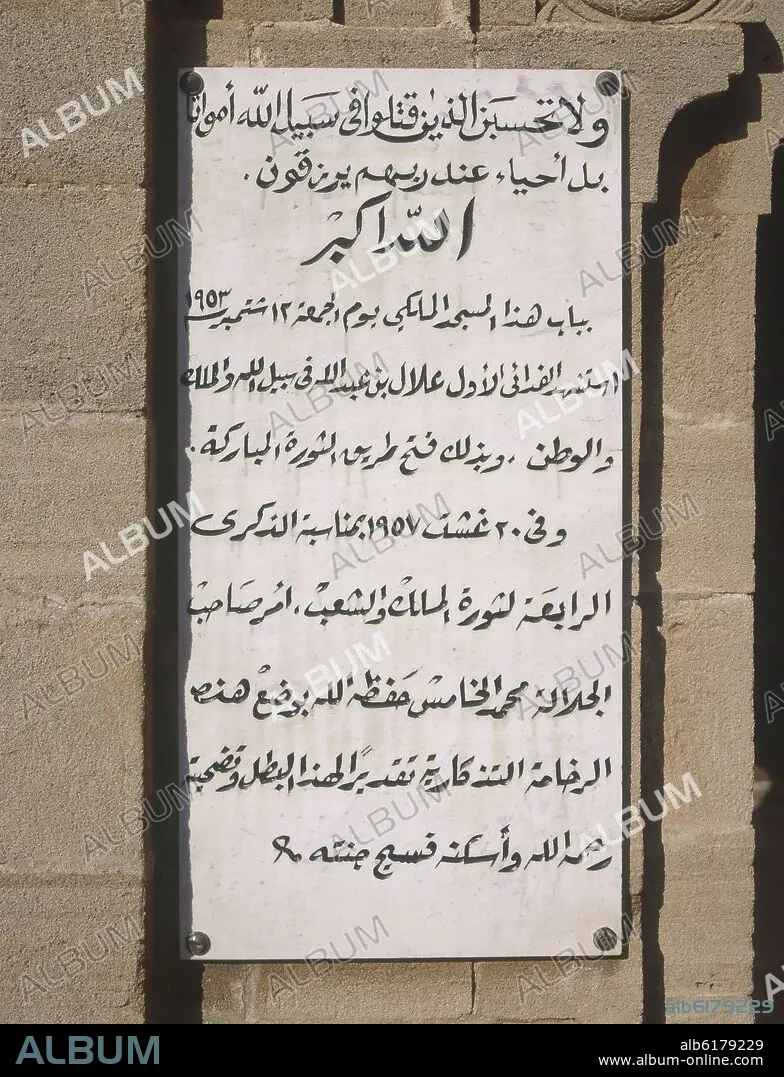 ولا تحسبن الذين قتلوا في سبيل الله أمواتا
بل أحياء عند ربهم يرزقون .
الله أكبر
بباب هذا المسجد الملكي يوم الجمعة ١٢ شتمبر ١٩٥٣
استشهد الفدائي الأول علال بن عبد الله في سبيل الله والملك
والوطن ، وبذلك فتح طريق الثورة المباركة .
وفي ٢٠ غشت ١٩٥٧ بمناسبة الذكرى
الرابعة لثورة الملك والشعب ، أمر صاحب
الجلالة محمد الخامس حفظه الله بوضع هذه
الرخامة التذكارية تقديرًا لهذا البطل وتضحيته
رحمه الله وأسكنه فسيح جنته
ALBUM
alb6179229
ALBUM
alb6179229
www.album-online.com